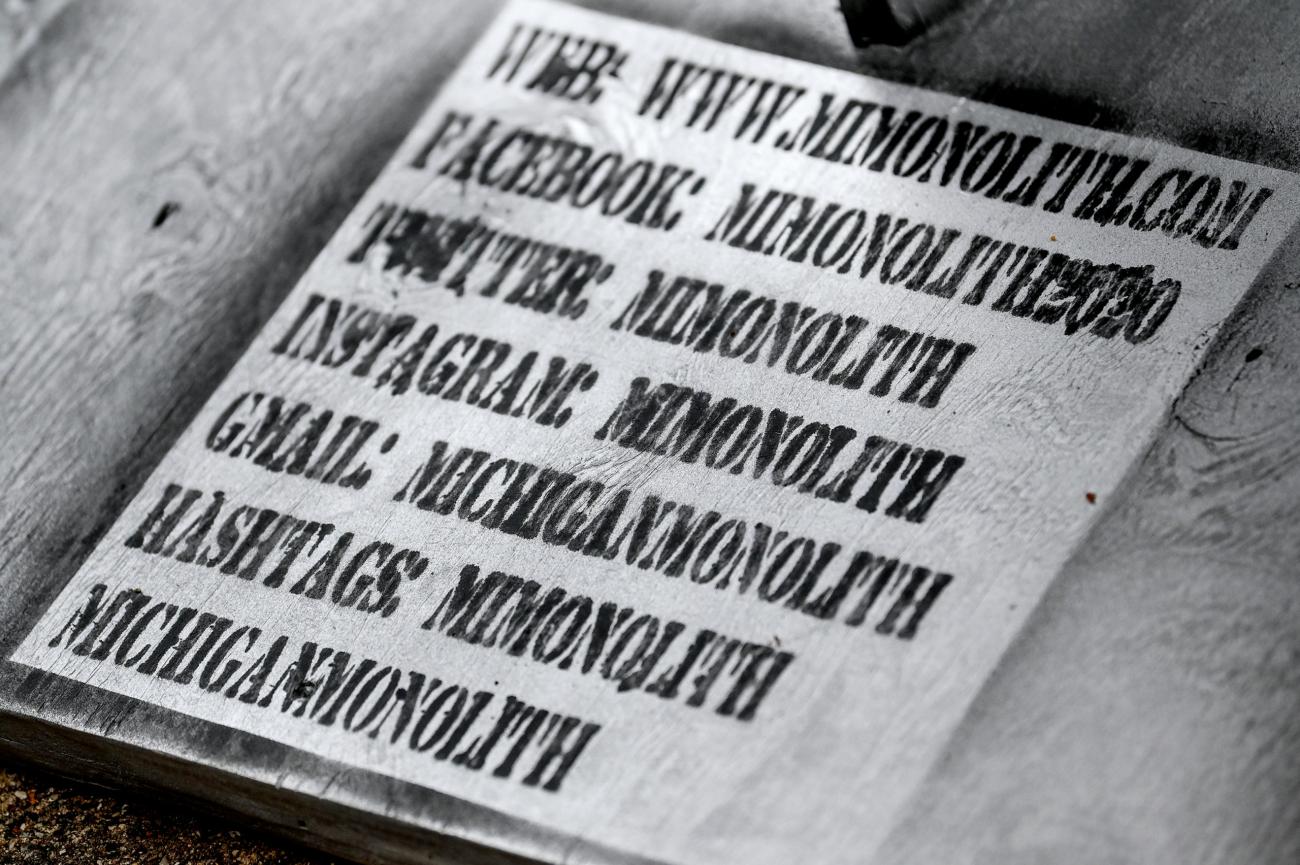 WEB: WWW.MIMONOLITH.COM
FACEBOOK: MIMONOLITH2020
TWITTER: MIMONOLITH
INSTAGRAM: MIMONOLITH
GMAIL: MICHIGANMONOLITH
HASHTAGS: MIMONOLITH
MICHIGANMONOLITH